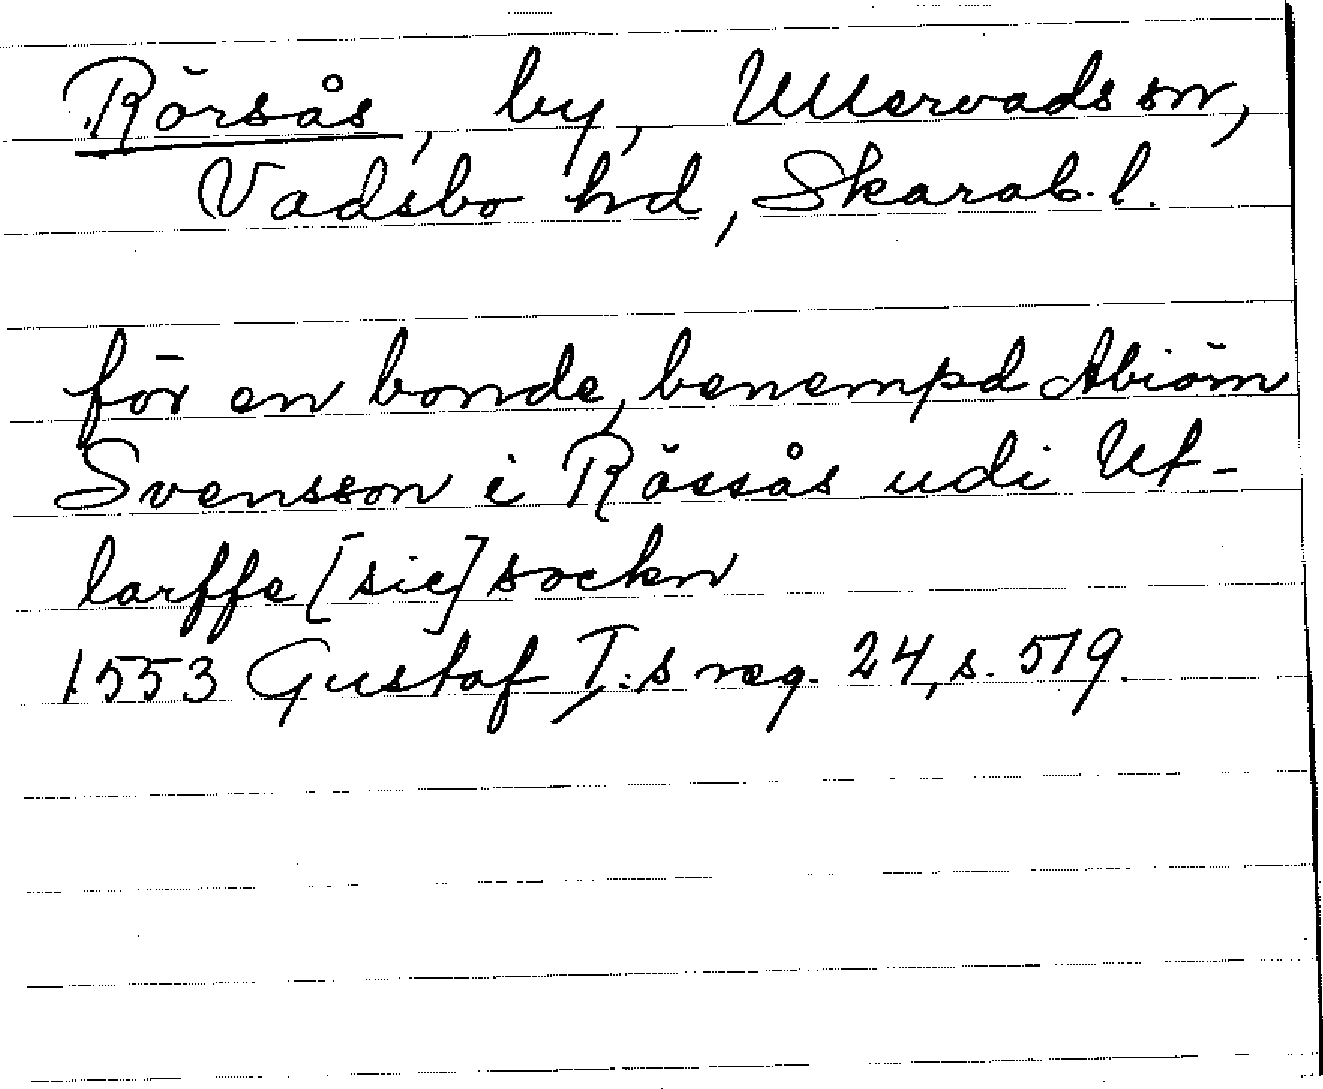 Rörsås, by, Ullervads sn,
Vadsbo hd, Skarab. l.
för en bonde, benempd Abiörn
Svensson i Rössås udi Ut-
larffe [sic] sockn
1553 Gustaf I:s reg. 24, s. 519.